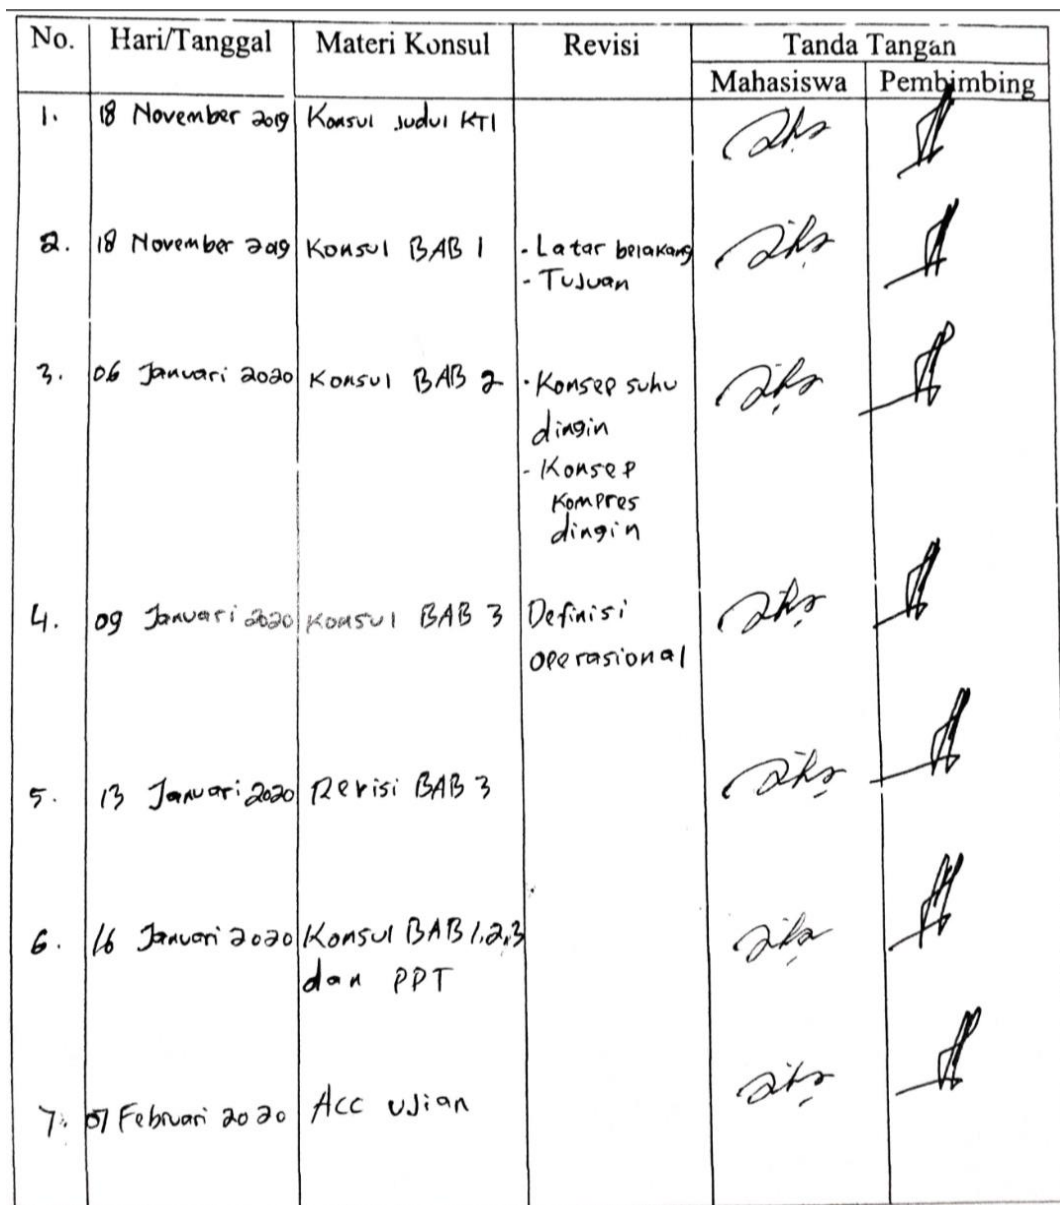 No. Hari/Tanggal Materi Konsul Revisi Tanda Tangan
Mahasiswa Pembimbing
1. 18 November 2019 Konsul Judul KTI
2. 18 November 2019 Konsul BAB 1 - Latar belakang
- Tujuan
3. 06 Januari 2020 Konsul BAB 2 - Konsep suhu
dingin
- Konsep
Kompres
dingin
4. 09 Januari 2020 Konsul BAB 3 Definisi
operasional
5. 13 Januari 2020 Revisi BAB 3
6. 16 Januari 2020 Konsul BAB 1,2,3
dan PPT
7. 07 Februari 2020 Acc Ujian